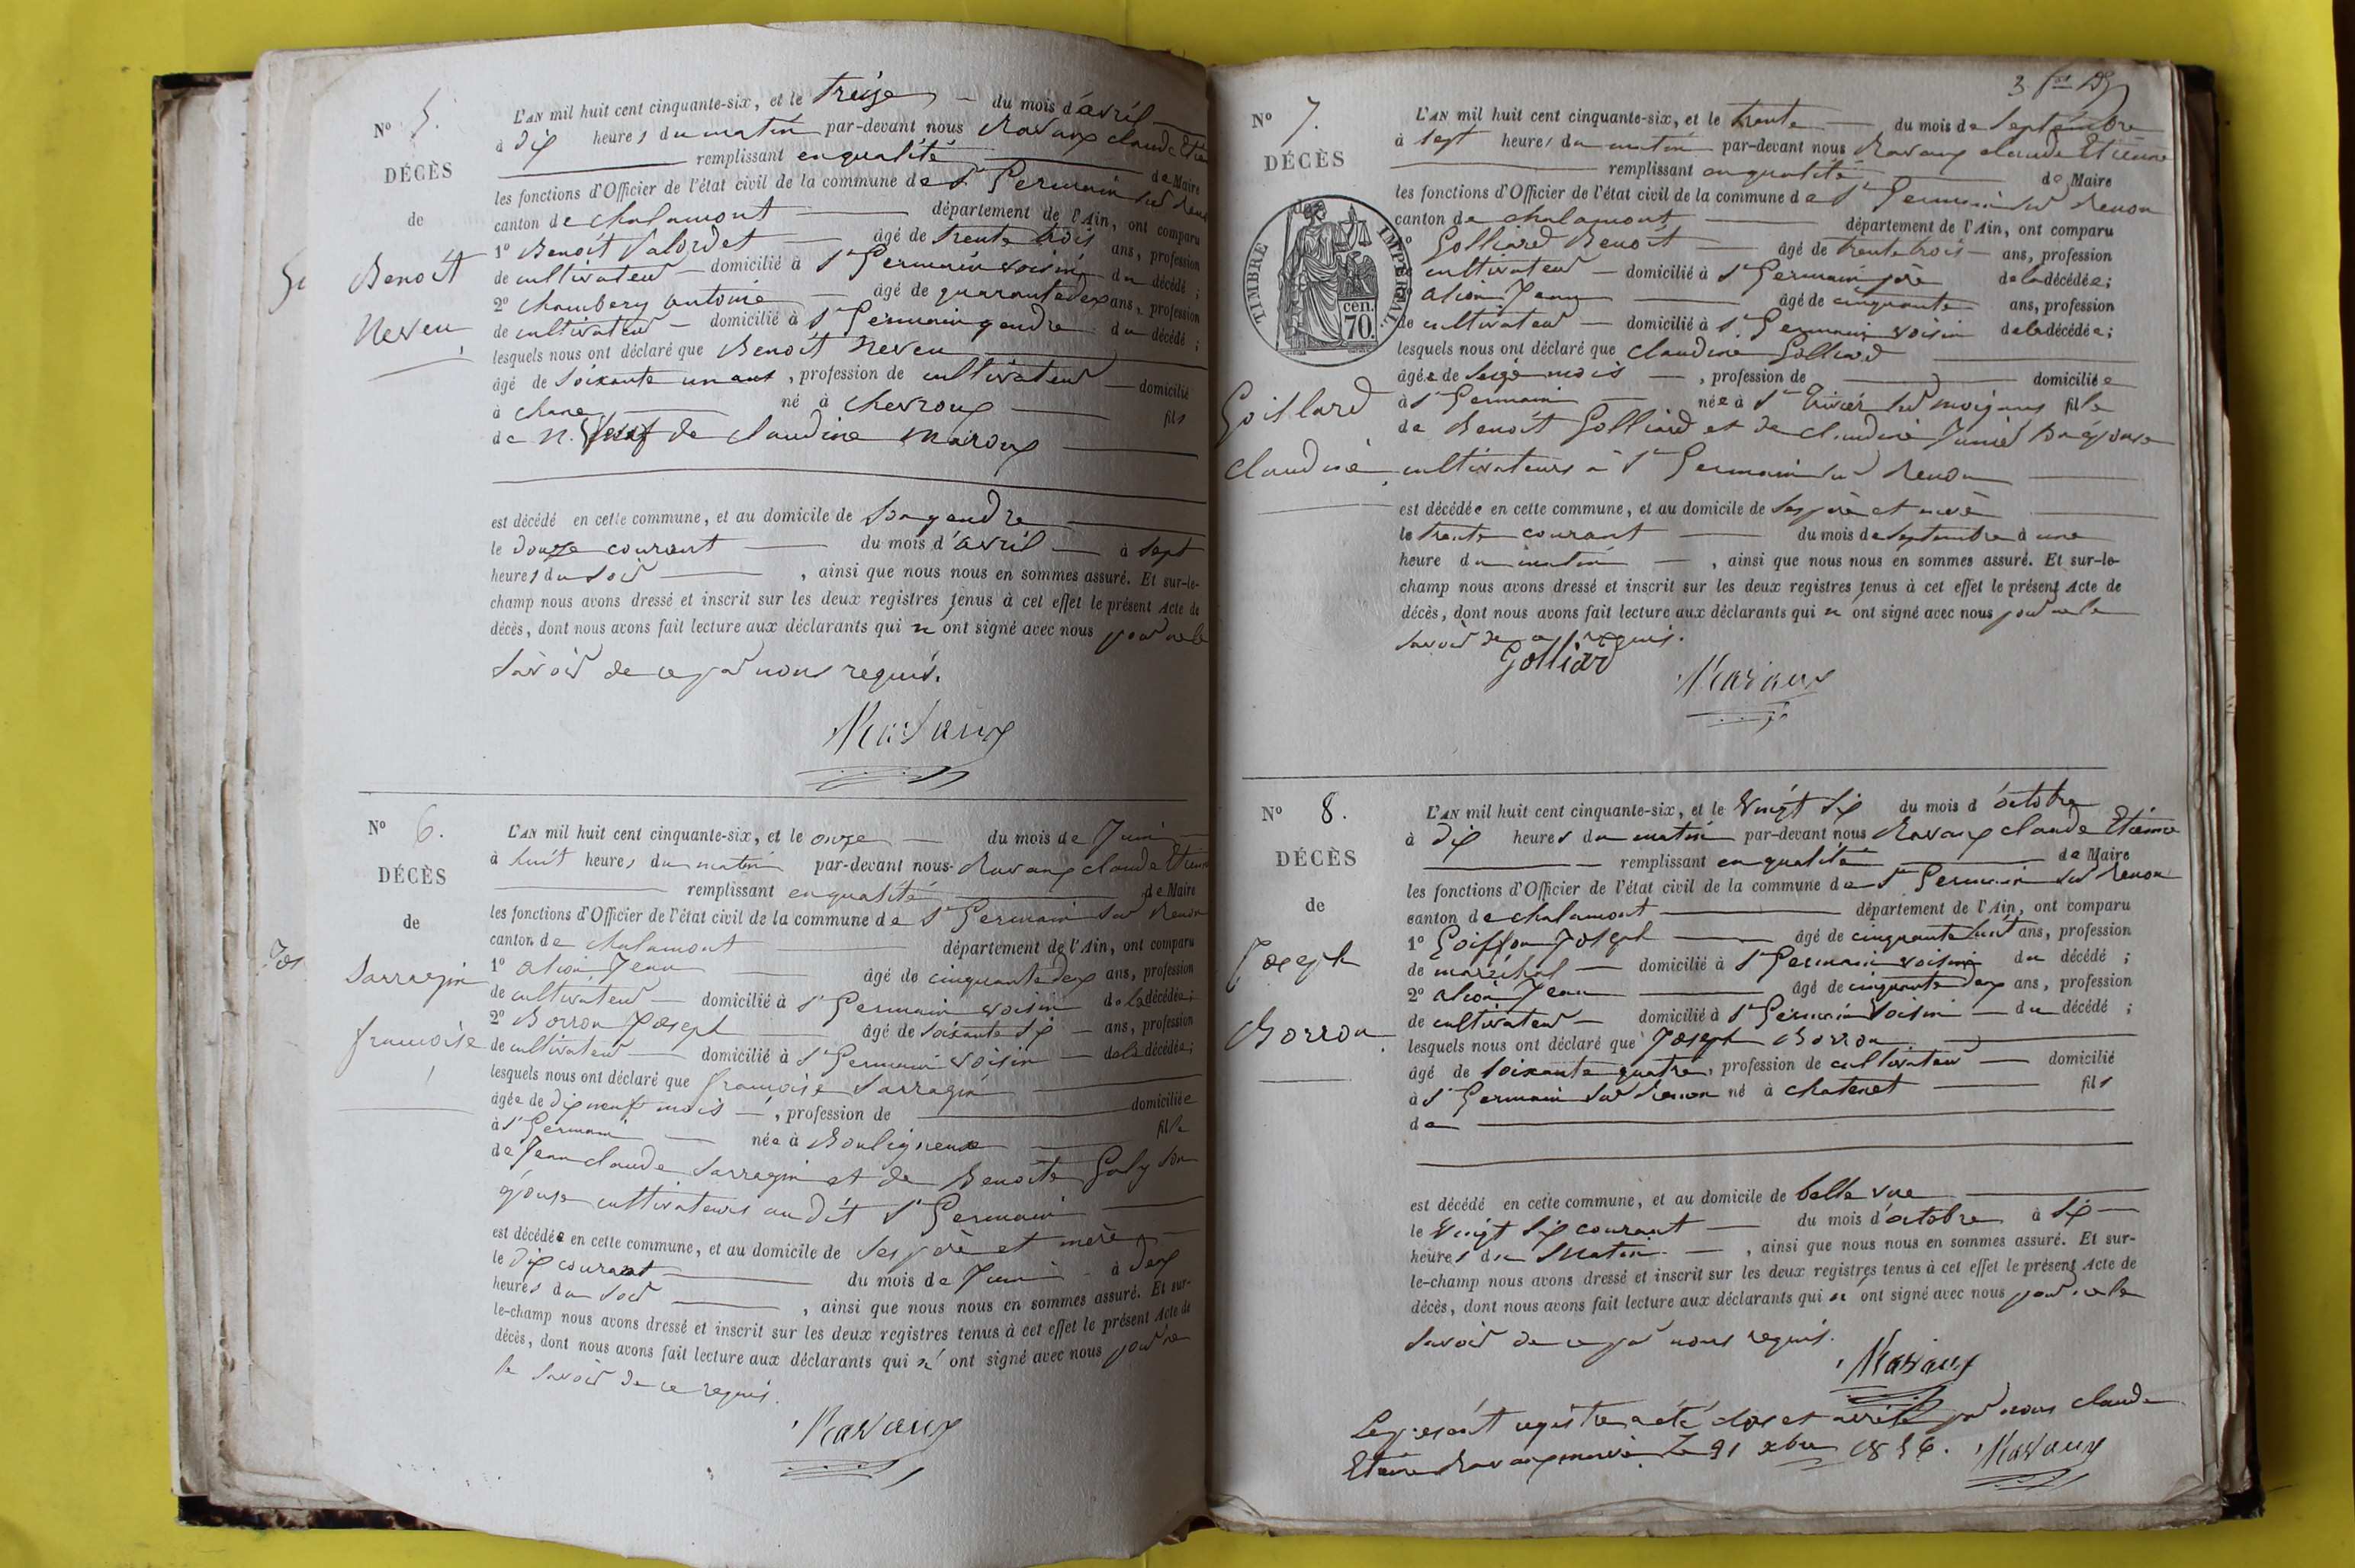 Nº 5.
DÉCÈS
de
Benoît
Neveu
L'AN mil huit cent cinquante-six, et le treize du mois d'avril
à dix heures du matin par-devant nous Ravaux claude Etie
remplissant en qualité de Maire
les fonctions d'Officier de l'état civil de la commune de St Germain sur Renon
canton de chalamont département de l'Ain, ont comparu
1º Benoît Valordet âgé de trente trois ans, profession
de cultivateur domicilié à St Germain voisin du décédé ;
2º Chambery antoine âgé de quarante deux ans, profession
de cultivateur domicilié à St Germain gendre du décédé ;
lesquels nous ont déclaré que Benoît Neveu
âgé de soixante un ans, profession de cultivateur domicilié
à né à Chevroux fils
de N. de claudine maroux
est décédé en cette commune, et au domicile de son gendre
le douze courant du mois d'avril à sept
heures du soir, ainsi que nous nous en sommes assuré. Et sur-le-
champ nous avons dressé et inscrit sur les deux registres tenus à cet effet le présent Acte de
décès, dont nous avons fait lecture aux déclarants qui n'ont signé avec nous pour ne le
savoir de ce par nous requis.
Ravaux
Nº 6.
DÉCÈS
de
Sarragin
francoise
L'AN mil huit cent cinquante-six, et le onze du mois de Juin
à huit heures du matin par-devant nous Ravaux claude Etienne
remplissant en qualité de Maire
les fonctions d'Officier de l'état civil de la commune de St Germain sur Renon
canton de chalamont département de l'Ain, ont comparu
1º alion Jean âgé de cinquante deux ans, profession
de cultivateur domicilié à St Germain voisin de la décédée ;
2º Borron Joseph âgé de soixante six ans, profession
de cultivateur domicilié à St Germain voisin de la décédée ;
lesquels nous ont déclaré que francoise Sarragin
âgée de dix neuf mois, profession de domiciliée
à St Germain née à Bouligneux fille
de Jean claude Sarragin et de Benoite Goly son
épouse cultivateurs au dit St Germain
est décédée en cette commune, et au domicile de ses père et mère
le dix courant du mois de Juin à deux
heures du soir, ainsi que nous nous en sommes assuré. Et sur-
le-champ nous avons dressé et inscrit sur les deux registres tenus à cet effet le présent Acte de
décès, dont nous avons fait lecture aux déclarants qui n'ont signé avec nous pour ne
le savoir de ce requis.
Ravaux
Nº 7.
DÉCÈS
TIMBRE IMPÉRIAL
70 cen.
Goillard
claudine
L'AN mil huit cent cinquante-six, et le trente du mois de Septembre
à sept heures du matin par-devant nous Ravaux claude Etienne
remplissant en qualité de Maire
les fonctions d'Officier de l'état civil de la commune de St Germain sur Renon
canton de chalamont département de l'Ain, ont comparu
Golliard Benoît âgé de trente trois ans, profession
cultivateur domicilié à St Germain père de la décédée ;
alion Jean âgé de cinquante ans, profession
de cultivateur domicilié à St Germain voisin de la décédée ;
lesquels nous ont déclaré que claudine Golliard
âgée de seize mois, profession de domiciliée
à St Germain née à St Trivier sur moignans fille
de Benoît Golliard et de claudine Junier son épouse
cultivateurs à St Germain sur Renon
est décédée en cette commune, et au domicile de ses père et mère
le trente courant du mois de septembre à une
heure du matin, ainsi que nous nous en sommes assuré. Et sur-le-
champ nous avons dressé et inscrit sur les deux registres tenus à cet effet le présent Acte de
décès, dont nous avons fait lecture aux déclarants qui n'ont signé avec nous pour ne le
savoir de ce requis.
Golliard
Ravaux
Nº 8.
DÉCÈS
de
Joseph
Borron
L'AN mil huit cent cinquante-six, et le vingt six du mois d'octobre
à dix heures du matin par-devant nous Ravaux claude Etienne
remplissant en qualité de Maire
les fonctions d'Officier de l'état civil de la commune de St Germain sur Renon
canton de chalamont département de l'Ain, ont comparu
1º Goiffon Joseph âgé de cinquante huit ans, profession
de maréchal domicilié à St Germain voisin du décédé ;
2º alion Jean âgé de cinquante deux ans, profession
de cultivateur domicilié à St Germain voisin du décédé ;
lesquels nous ont déclaré que Joseph Borron
âgé de soixante quatre, profession de cultivateur domicilié
à St Germain sur Renon né à chatenet fils
de
est décédé en cette commune, et au domicile de belle vue
le vingt six courant du mois d'octobre à six
heures du matin, ainsi que nous nous en sommes assuré. Et sur-
le-champ nous avons dressé et inscrit sur les deux registres tenus à cet effet le présent Acte de
décès, dont nous avons fait lecture aux déclarants qui n'ont signé avec nous pour ne le
savoir de ce par nous requis.
Ravaux
Le présent registre a été clos et arrêté par nous claude
Etienne Ravaux maire Le 31 xbre 1856. Ravaux